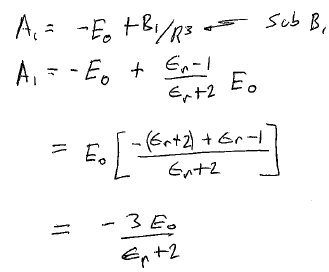 A₁ = -E₀ + B₁/R³ ← Sub B₁
A₁ = -E₀ + (εᵣ-1)/(εᵣ+2) E₀
= E₀ [ (-(εᵣ+2) + εᵣ-1)/(εᵣ+2) ]
= - 3E₀/(εᵣ+2)